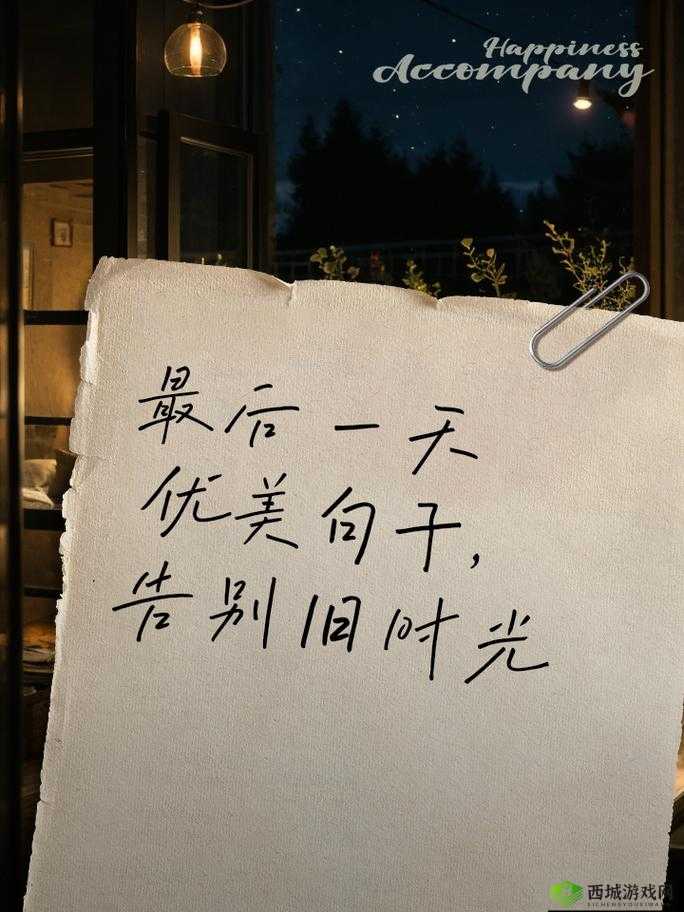 Happiness
Accompany
最后一天
优美句子,
告别旧时光
西城游戏网